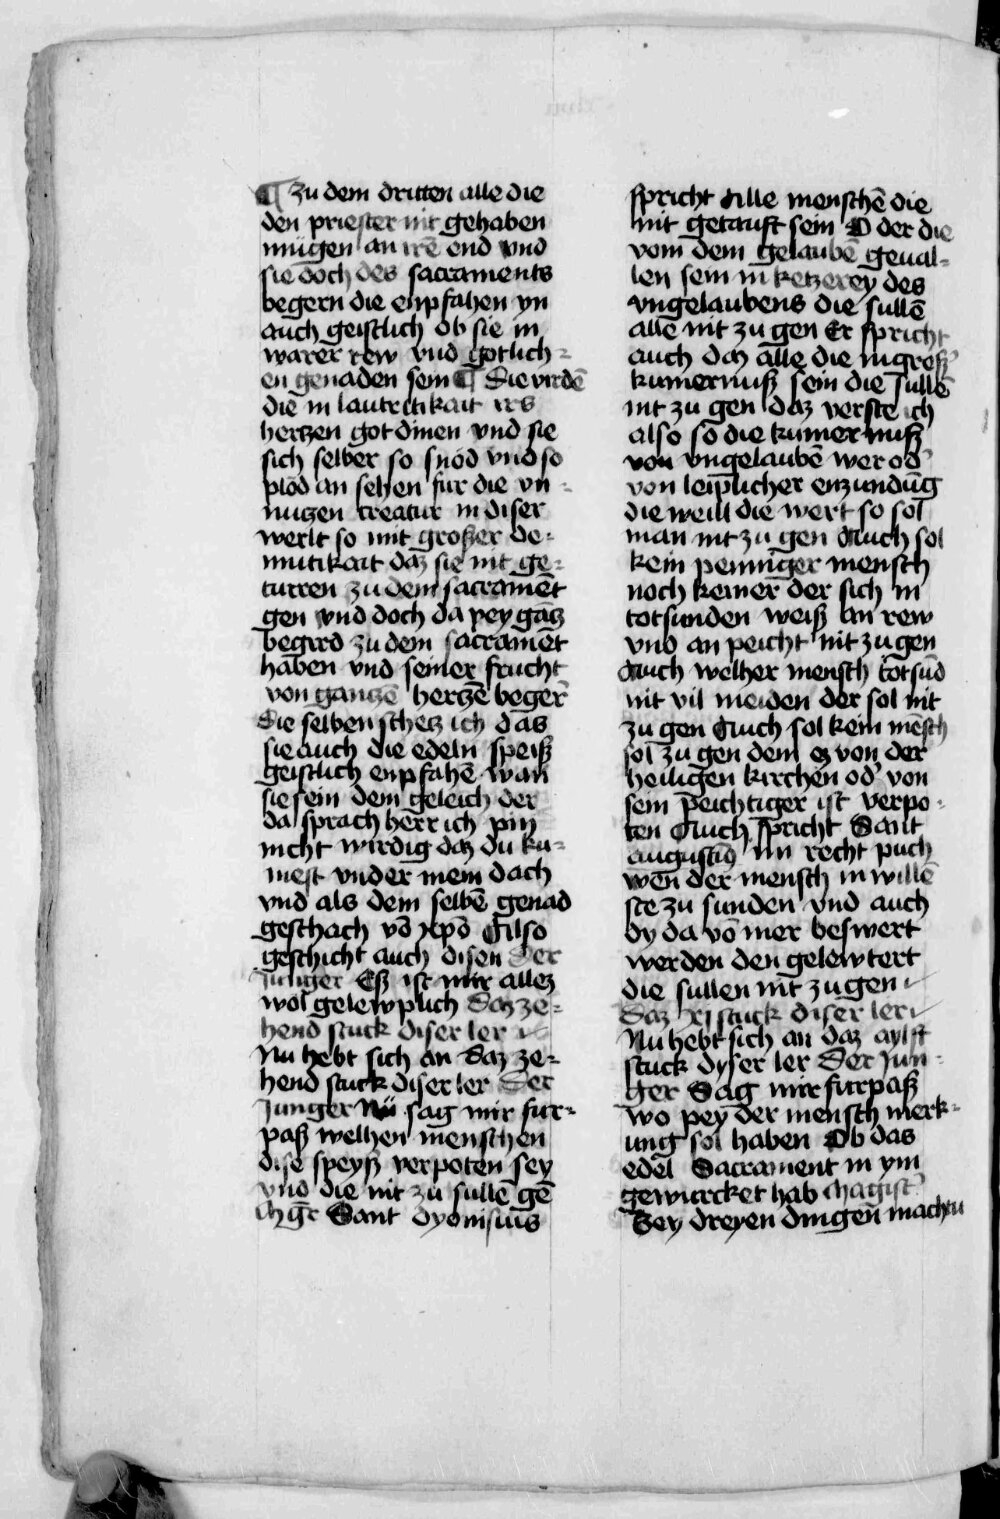 ¶ Zu dem dritten alle die
den priester nit gehaben
mügen an irē end vnd
sie doch des sacraments
begern die enpfahen yn
auch geistlich ob sie in
warer rew vnd gotlich-
en genaden sein ¶ Die virdē
die in lautrctikait irs
hertzen got dinen vnd sie
sich selber so snöd vnd so
plöd an sehen für die vn-
nutzen creatur in diser
werlt so mit großer de-
mutikait daz sie nit ge-
turren zu dem sacramēt
gen vnd doch da pey gātz
begird zu dem sacramēt
haben vnd seiner frucht
von gantzē hertzē begerⁿ
Die selben schetz ich das
sie auch die edeln speiß
geistlich enpfahē wan
sie sein dem geleich der
da sprach herr ich pin
nicht wirdig daz du ku-
mest vnder mein dach
vnd als dem selbē genad
geschach vō xpō Also
geschicht auch disen Der
Junger Eß ist mir allez
wol gelewplich Daz ze-
hend stuck diser ler
Nu hebt sich an Daz ze-
hend stuck diser ler Der
Junger Nū sag mir fur-
paß welhen menschen
dise speyß verpoten sey
vnd die nit zu sullē gē
Mgr̄ Sant dyonisius
spricht Alle menschē die
nit getauft sein O der die
vom dem gelaubē geual-
len sein in ketzerey des
vngelaubens die sullē
allē nit zu gen Er spricht
auch daz alle die in großʾ
kumernuß sein die sullē
nit zu gen daz verste ich
also so die kumernuß
von vngelaubē wer odʾ
von leiplicher enzundūg
die weill die wert so sol
man nit zu gen Auch sol
kein penniger mensch
noch keiner der sich in
totsunden weiß an rew
vnd an peicht nit zu gen
Auch welher mensch totsūd
nit vil meiden der sol nit
zu gen Auch sol kein mēsch
sol zu gen dem ez von der
heiligen kirchen odʾ von
sein peichtiger ist verpo-
ten Auch spricht Sant
augustiꝰ im recht puch
wen der mensch in willē
ste zu sunden vnd auch
dy da vō mer beswert
werden den gelewtert
die sullen nit zu gen
Daz xj stuck diser ler
Nu hebt sich an daz aylft
stuck dyser ler Der Jun-
ger Sag mir furpaß
wo pey der mensch merk-
ung sol haben Ob das
edel Sacrament in ym
gewurcket hab Magistʾ
Bey dreyen dingen machtu